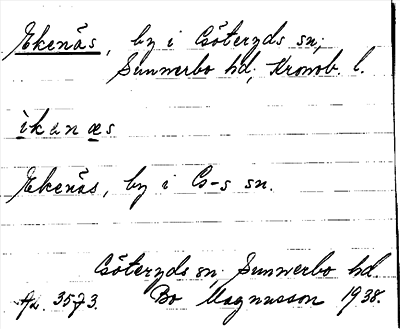 Ekenäs, by i Göteryds sn,
Sunnerbo hd, Kronob. l.
ìkɑnæs
Ekenäs, by i G-s sn.
Göteryds sn, Sunnerbo hd
Bo Magnusson 1938.